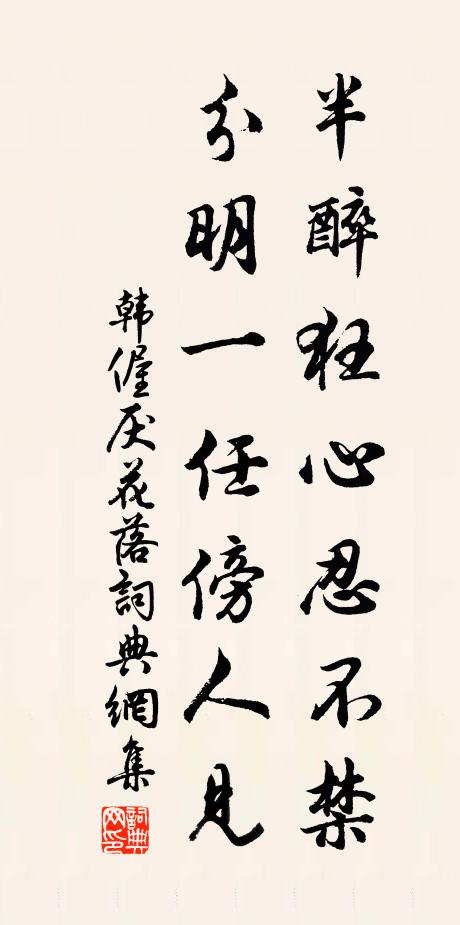 半醉狂心忍不禁
分明一任傍人見
韩偓厌花落詞典網集
詞典网印